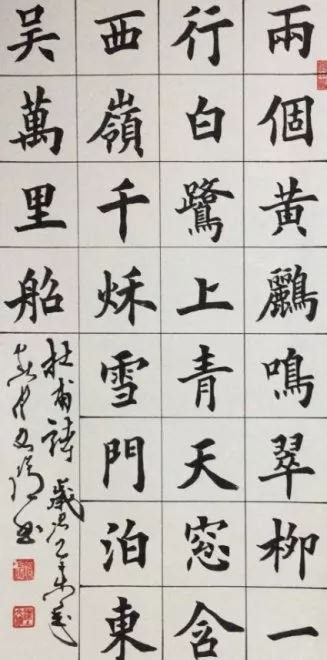 兩個黃鸝鳴翠柳一
行白鷺上青天窓含
西嶺千秋雪門泊東
吳萬里船
杜甫詩